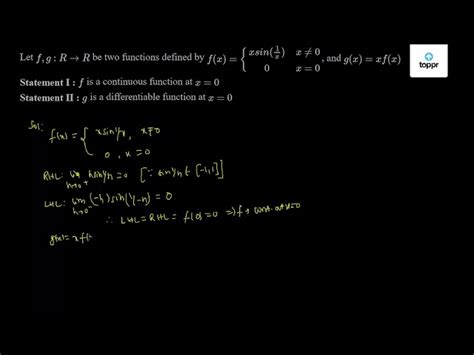 Let f, g : R → R be two functions defined by f(x) = { x sin(1/x) x ≠ 0
0 x = 0 , and g(x) = xf(x)
toppr
Statement I : f is a continuous function at x = 0
Statement II : g is a differentiable function at x = 0
Sol:
f(x) = { x sin 1/x, x≠0
0, x = 0
RHL: lim h→0⁺ h sin 1/h = 0 [∵ sin 1/h ∈ [-1,1]]
LHL: lim h→0⁻ (-h) sin(1/-h) = 0
∴ LHL = RHL = f(0) = 0 ⇒ f → cont. at x=0
g(x) = x f(